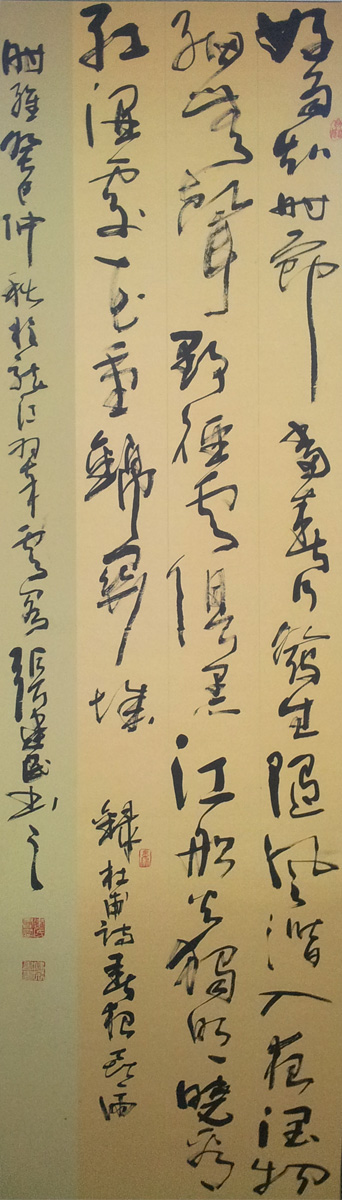 好雨知时節當春乃發生隨風潛入夜潤物
細無聲野徑雲俱黑江船火獨明曉看
紅濕處花重錦官城
錄杜甫詩春夜喜雨
时維癸巳仲秋於龍江張建民書之